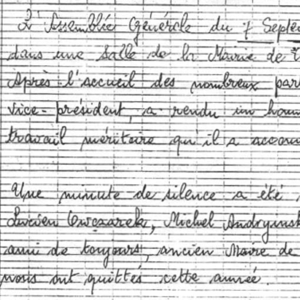 L'Assemblée Générale du 7 Septe
dans une salle de la Mairie de
Après l'accueil des nombreux par
vice-président, a rendu un hom
travail méritoire qu'il a accom
Une minute de silence a été
Lucien Owczarek, Michel Andrzynsk
ami de toujours, ancien Maire de
nous ont quittés cette année.